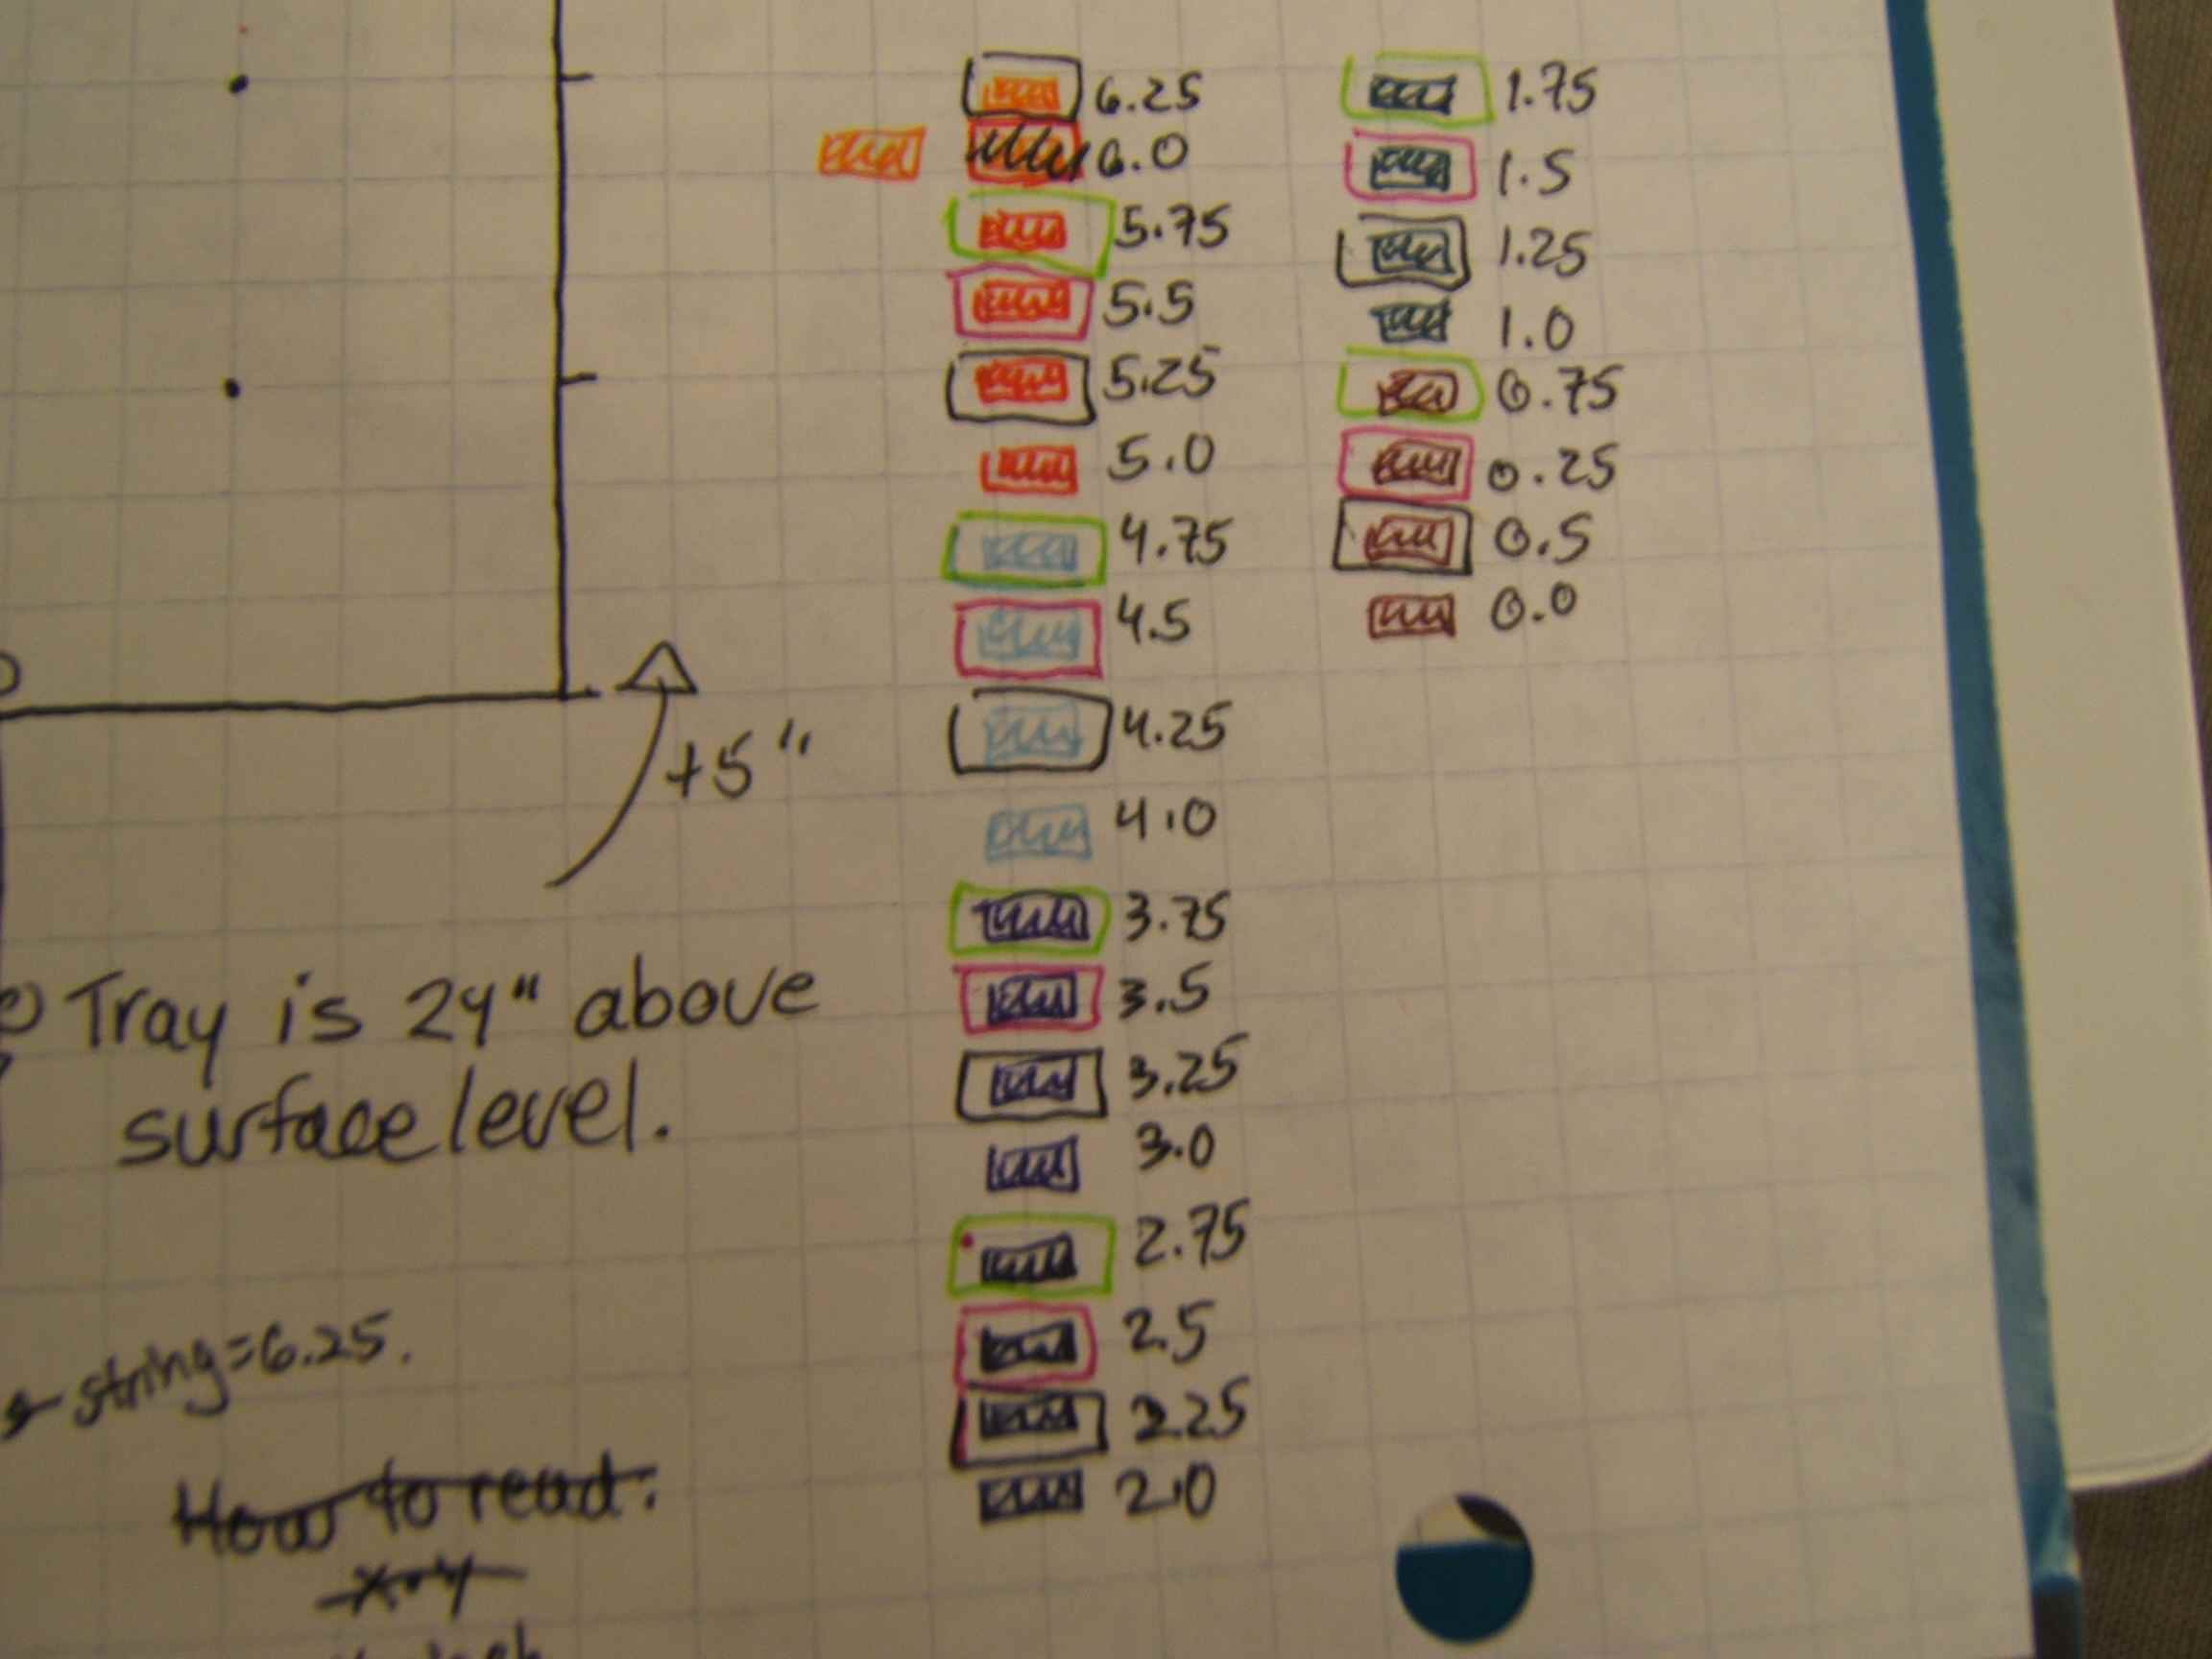 6.25
6.0
5.75
5.5
5.25
5.0
4.75
4.5
4.25
4.0
3.75
3.5
3.25
3.0
2.75
2.5
2.25
2.0
1.75
1.5
1.25
1.0
0.75
0.25
0.5
0.0
+5"
Tray is 24" above
surface level.
string=6.25.
How to read: